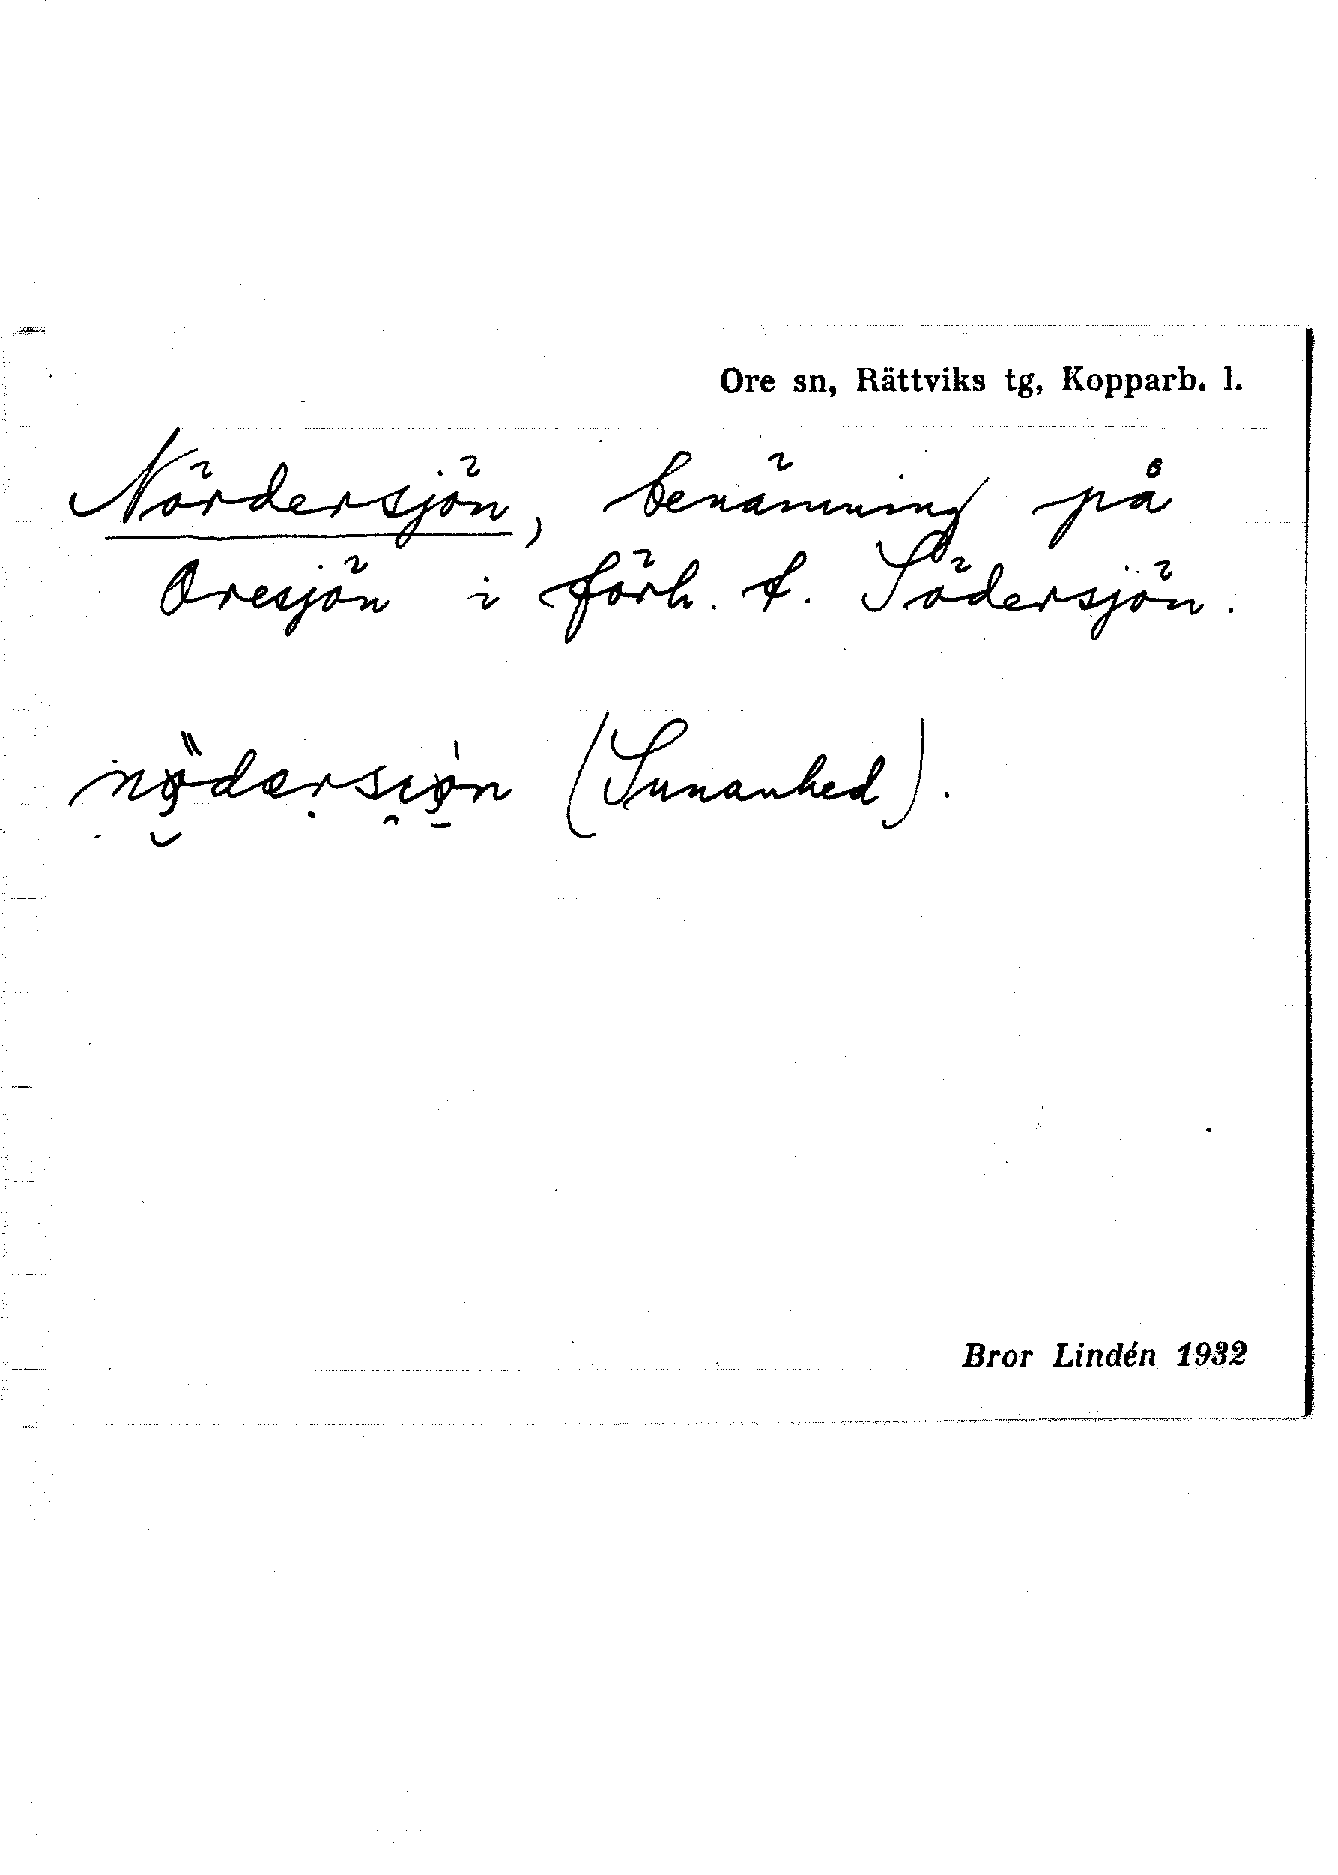 Ore sn, Rättviks tg, Kopparb. l.
Nördersjön, benämning på
Oresjön i förh. t. Södersjön.
(Sunanhed).
Bror Lindén 1932